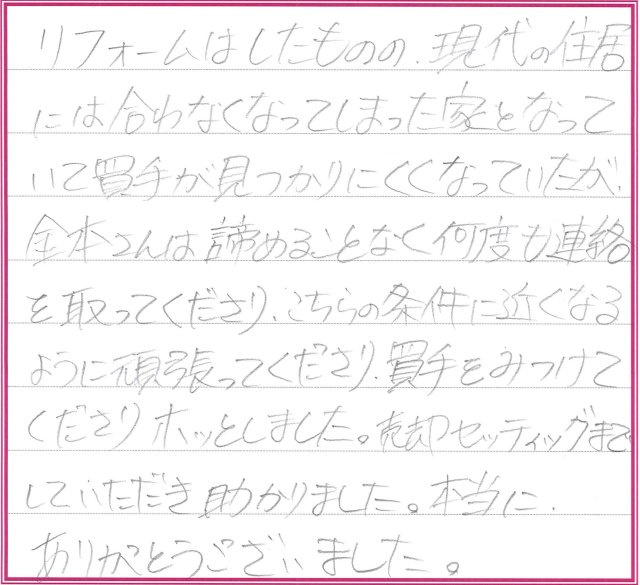 リフォームはしたものの、現代の住居
には合わなくなってしまった家となって
いて買手が見つかりにくくなっていたが、
金本さんは諦めることなく何度も連絡
を取ってくださり、こちらの条件に近くなる
ように頑張ってくださり、買手をみつけて
くださりホッとしました。売却セッティングまで
していただき助かりました。本当に、
ありがとうございました。